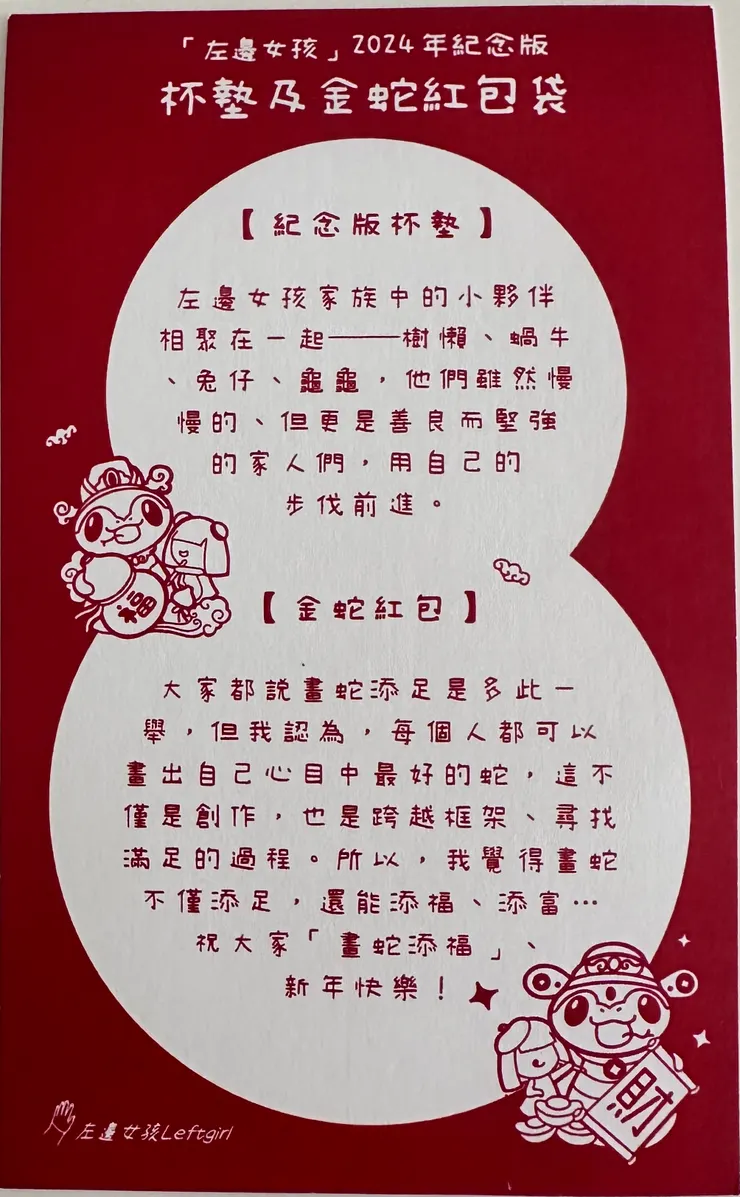 「左邊女孩」2024年紀念版
杯墊及金蛇紅包袋
【紀念版杯墊】
左邊女孩家族中的小夥伴
相聚在一起——樹懶、蝸牛
、兔仔、龜龜，他們雖然慢
慢的、但更是善良而堅強
的家人們，用自己的
步伐前進。
福
【金蛇紅包】
大家都說畫蛇添足是多此一
舉，但我認為，每個人都可以
畫出自己心目中最好的蛇，這不
僅是創作，也是跨越框架、尋找
滿足的過程。所以，我覺得畫蛇
不僅添足，還能添福、添富…
祝大家「畫蛇添福」、
新年快樂！
財
左邊女孩Leftgirl